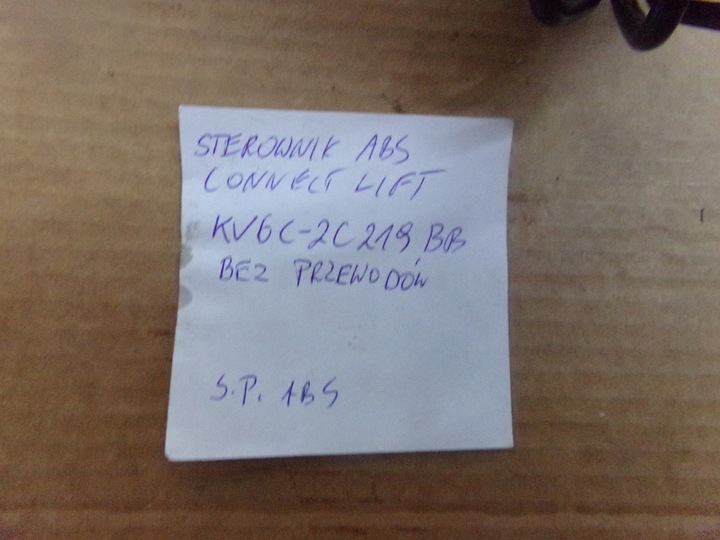 STEROWNIK ABS
CONNECT LIFT
KV6C-2C219 BB
BEZ PRZEWODÓW
S.P. ABS